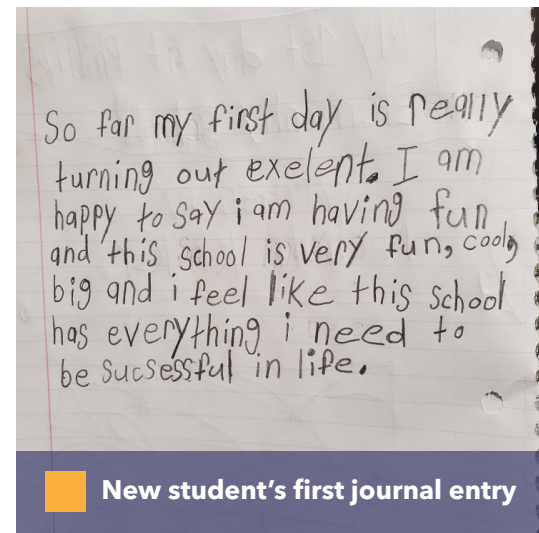 So far my first day is really
turning out exelent. I am
happy to say i am having fun
and this school is very fun, cool,
big and i feel like this school
has everything i need to
be sucsessful in life.
New student's first journal entry